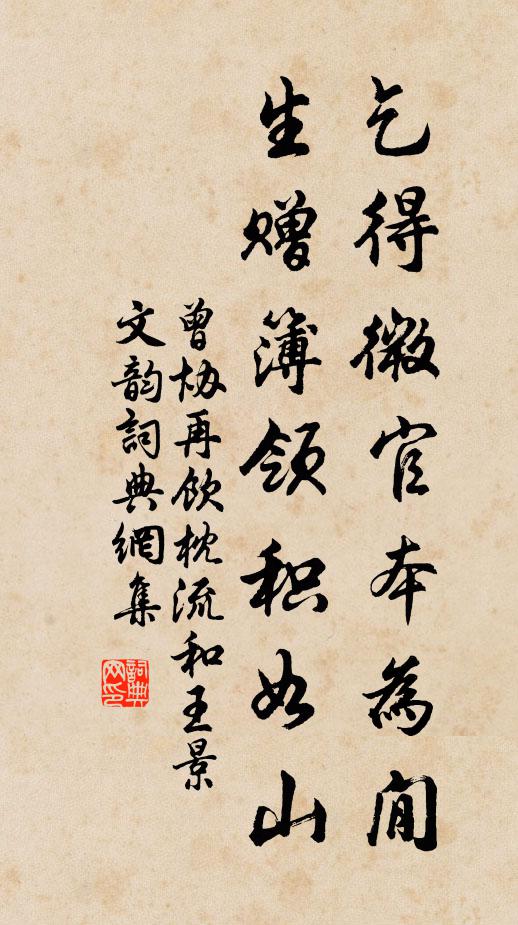 乞得微官本為閒
生赠簿领积如山
曾协再饮枕流和王景
文韵詞典網集
詞典
网印